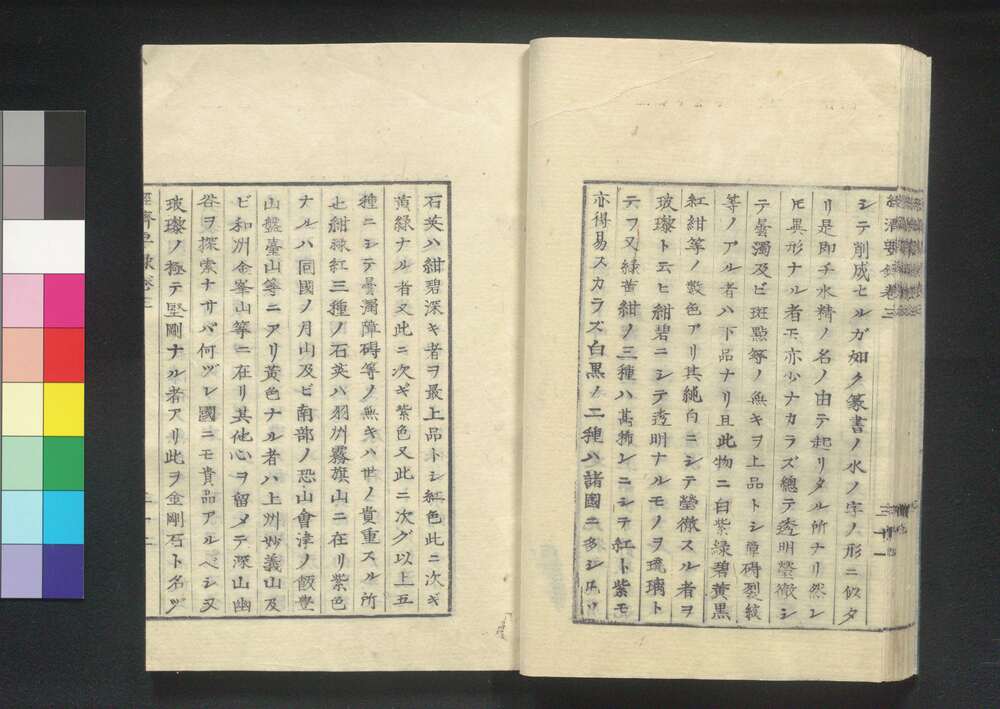 シテ削成セルガ如ク篆書ノ水ノ字ノ形ニ似タ
リ是即チ水精ノ名ノ由テ起リタル所ナリ然レ
𪜈異形ナル者モ亦少ナカラズ總テ透明瑩徹シ
テ曇濁及ビ斑點等ノ無キヲ上品トシ障碍裂紋
等ノアル者ハ下品ナリ且此物ニ白紫綠碧黄黒
紅紺等ノ數色アリ其純白ニシテ瑩徹スル者ヲ
玻瓈ト云ヒ紺碧ニシテ透明ナルモノヲ琉璃ト
云フ又綠黄紺ノ三種ハ甚稀レニシテ紅ト紫モ
亦得易スカラズ白黒ノ二種ハ諸國ニ多シ
經濟要錄卷三
三十一
石英ハ紺碧深キ者ヲ最上品トシ紅色此ニ次ギ
黄綠ナル者又此ニ次ギ紫色又此ニ次グ以上五
種ニシテ曇濁障碍等ノ無キハ世ノ貴重スル所
也紺綠紅三種ノ石英ハ羽州霧旗山ニ在リ紫色
ナルハ同國ノ月山及ビ南部ノ恐山會津ノ飯豊
山盤臺山等ニアリ黄色ナル者ハ上州妙義山及
ビ和州金峯山等ニ在リ其他心ヲ留メテ深山幽
谷ヲ探索ナサバ何ヅレ國ニモ貴品アルベシ又
玻瓈ノ極テ堅剛ナル者アリ此ヲ金剛石ト名ヅ